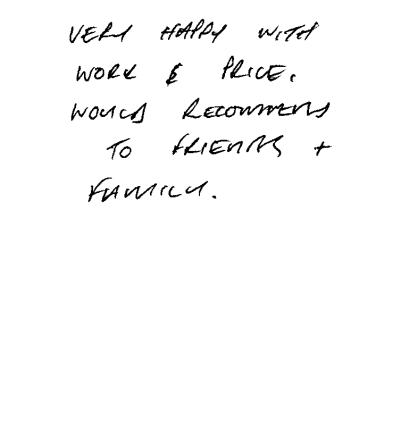 VERY HAPPY WITH
WORK & PRICE.
WOULD RECOMMEND
TO FRIENDS +
FAMILY.